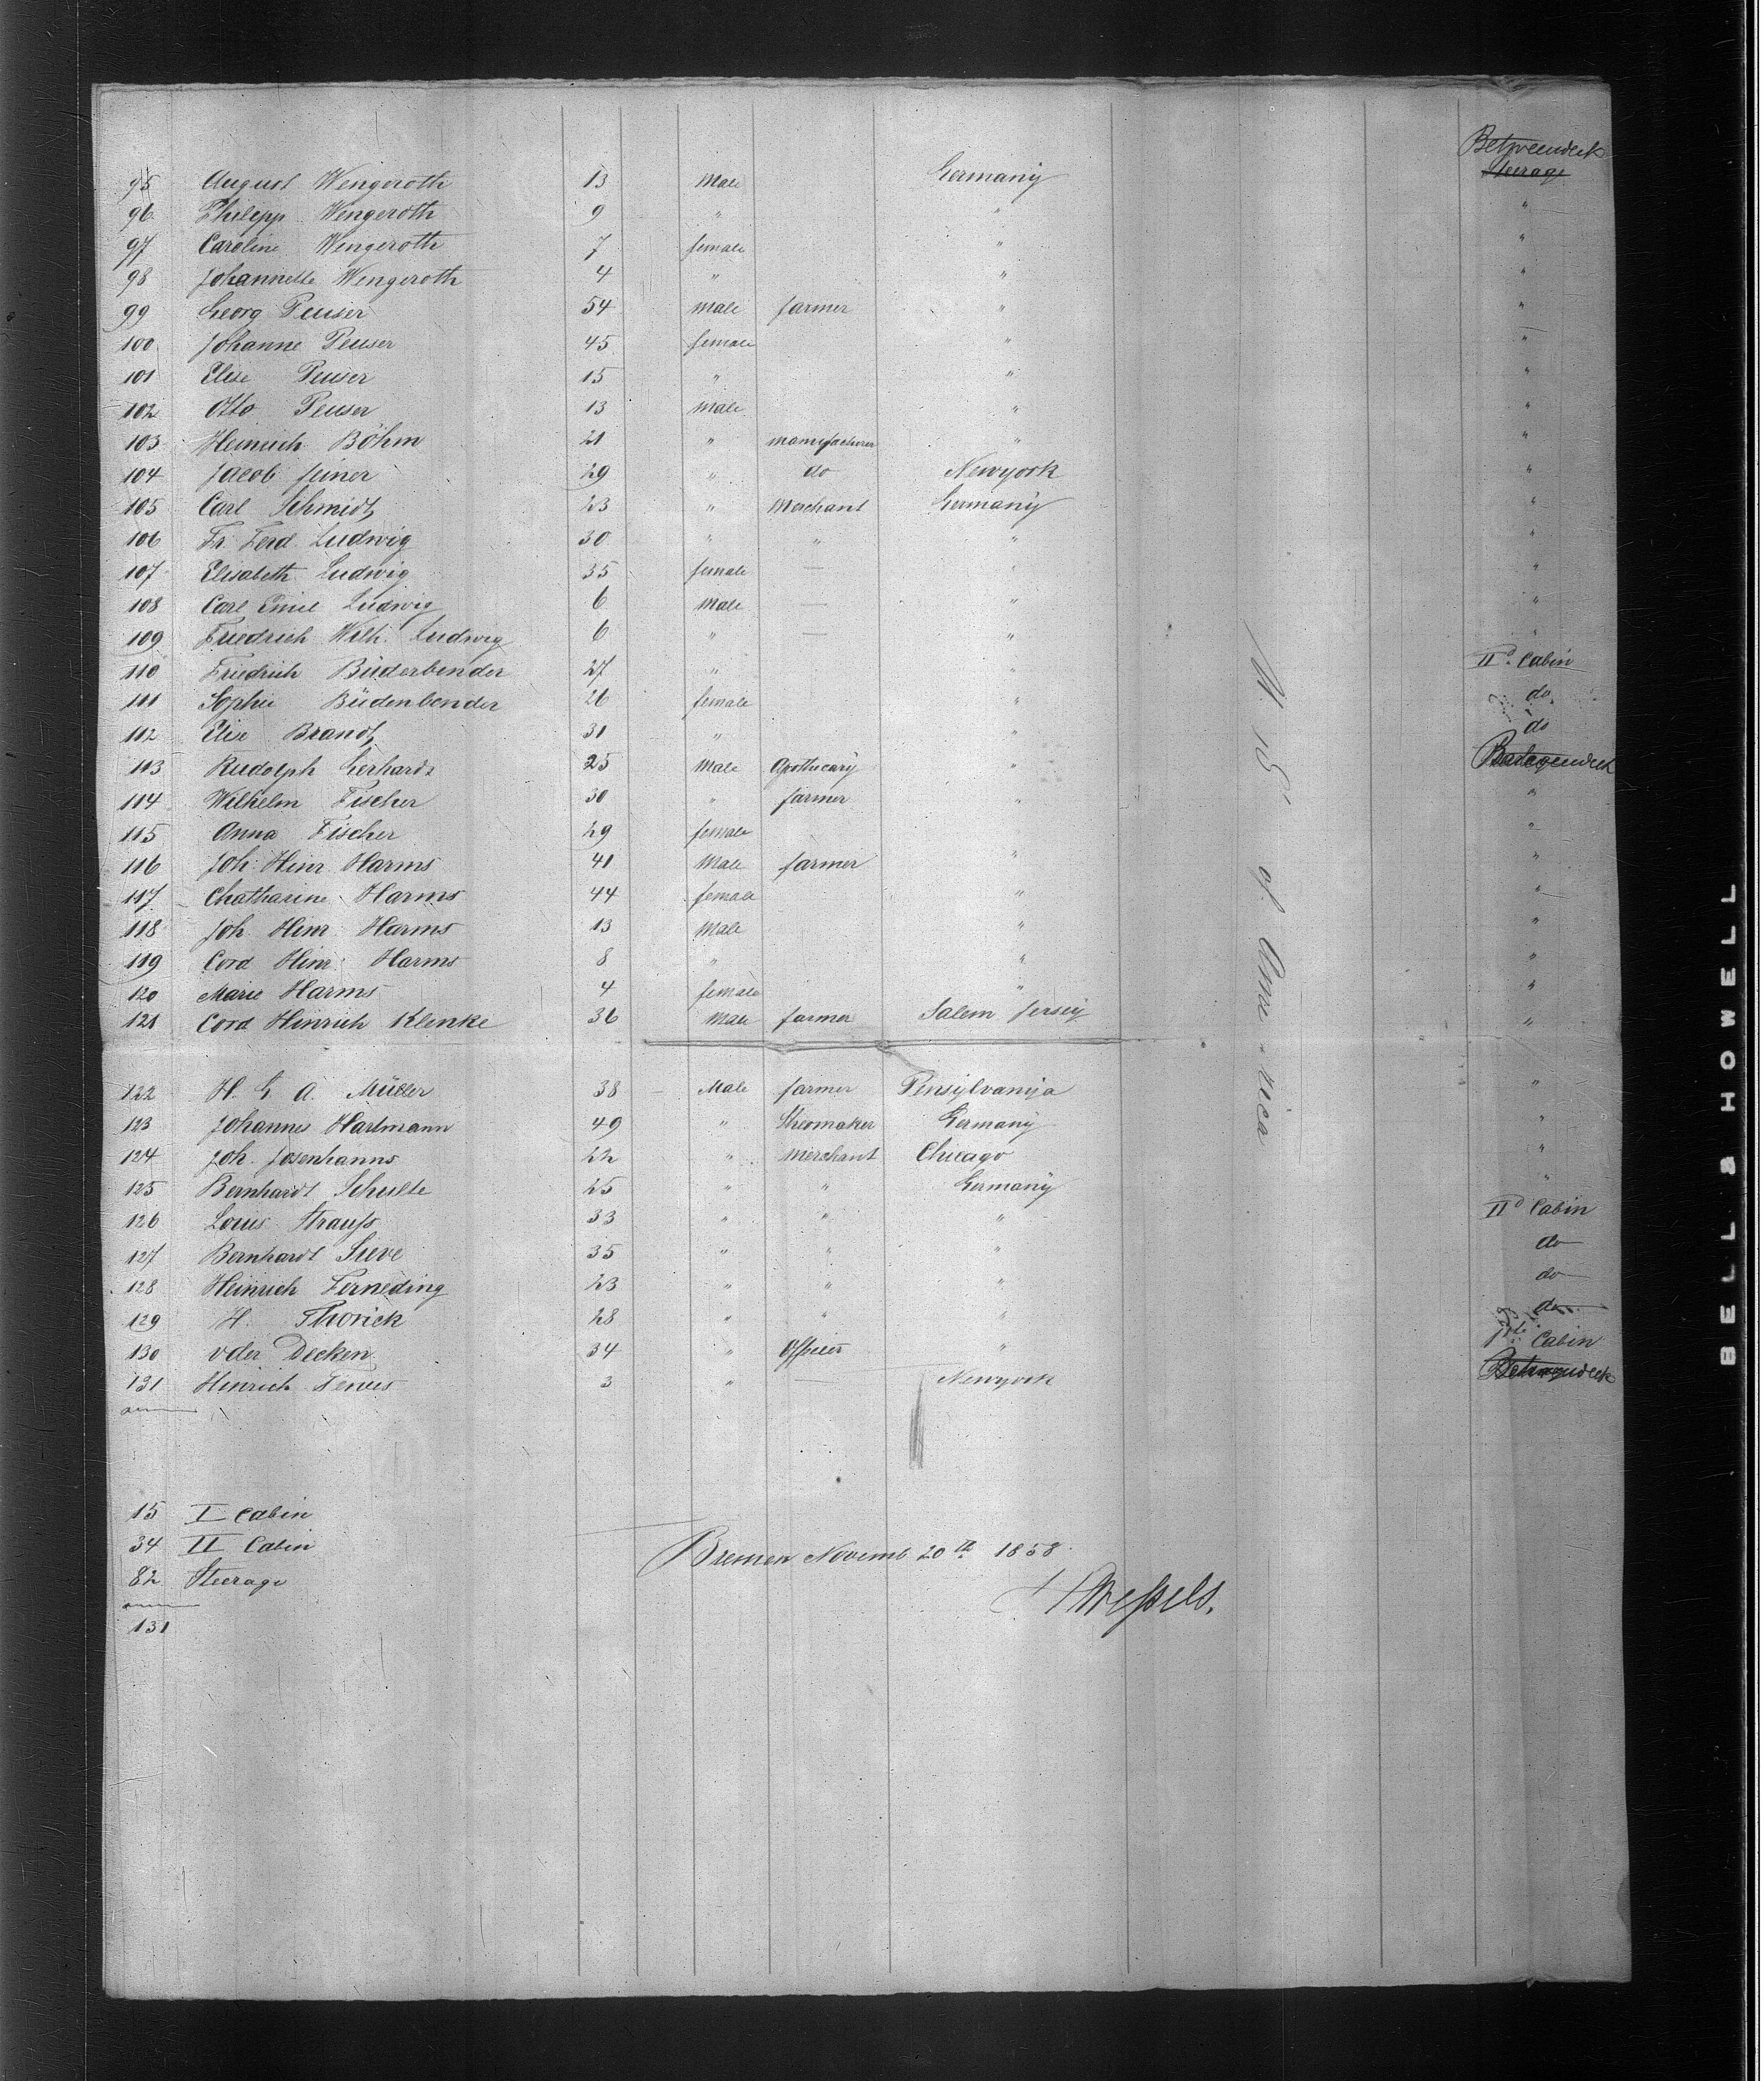 Betweendeck
95 August Wengeroth 13 Male Germany Steerage
96 Philipp Wengeroth 9 " " "
97 Caroline Wengeroth 7 female " "
98 Johannette Wengeroth 4 " " "
99 Georg Peuser 54 male farmer " "
100 Johanne Peuser 45 female " "
101 Elise Peuser 15 " " "
102 Otto Peuser 13 male " "
103 Heinrich Böhm 21 " manufacturer " "
104 Jacob Jeiner 29 " do Newyork "
105 Carl Schmidt 23 " Merchant Germany "
106 Fr. Ferd. Ludwig 30 " " " "
107 Elisabeth Ludwig 35 female — " "
108 Carl Emil Ludwig 6 Male — " "
109 Friedrich Wilh. Ludwig 6 " — " "
110 Friedrich Büderbender 27 " " IId Cabin
111 Sophie Büdenbender 26 female " do
112 Elise Brandt 31 " " do
113 Rudolph Gerhards 25 Male Apothecary "
114 Wilhelm Fischer 30 " farmer " "
115 Anna Fischer 29 female "
116 Joh. Hinr. Harms 41 Male farmer " "
117 Chatharine Harms 44 female " "
118 Joh. Hinr. Harms 13 Male " "
119 Cord Hinr. Harms 8 " " "
120 Marie Harms 4 female " "
121 Cord Hinrich Klenke 36 Male farmer Salem Jersey "
122 H. G. A. Müller 38 — Male farmer Pensylvanija "
123 Johannes Hartmann 49 " Sheomaker Germany "
124 Joh. Josenhanns 22 " Merchant Chicago "
125 Bernhardt Schulte 25 " " Germany "
126 Louis Strauss 33 " " " IId Cabin
127 Bernhardt Sieve 35 " " " do
128 Heinrich Ferneding 23 " " " do
129 H. Thorick 28 " " " do
130 vder Decken 34 " Officier " Cabin
131 Hinrich 3 " — Newyork Betweendeck
U. S. of America
15 I Cabin
34 II Cabin
82 Steerage
131
Bremen Novemb 20th 1858.
H Wessels.
BELL & HOWELL